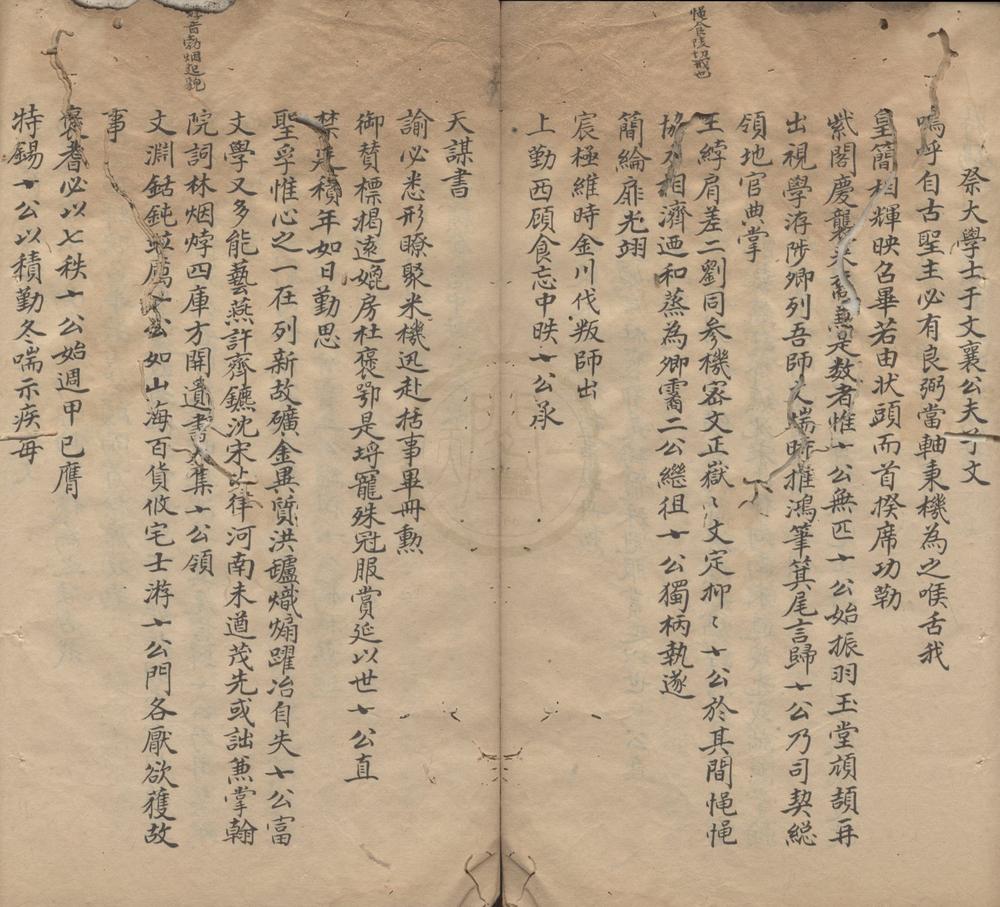 祭大學士于文襄公夫子文
嗚呼自古聖主必有良弼當軸秉機為之喉舌我
皇簡相輝映召畢若由狀頭而首揆席功勒
紫閣慶襲兼是数者惟公無匹公始振羽玉堂頑頡再
出視學洊陟卿列吾師文端時推鴻筆箕尾言歸公乃司契緫
領地官典掌
王綍肩差二劉同参機宻文正嶽〻文定抑〻公於其間㥿㥿
協相濟迺和蒸為卿霱二公繼徂公獨柄執遂
簡綸扉光翊
宸極維時金川代叛師出
上勤西顧食忘中昳公承
天謀書
諭必悉形瞭聚米機迅赴括事畢冊勲
御賛標掲遠媲房杜褒鄂是埒寵殊冠服賞延以世公直
禁廷積年如日勤思
聖孚惟心之一在列新故礦金異質洪鑪熾煽躍冶自失公富
文學又多能藝燕許齊鑣沈宋比律河南未遒茂先或詘兼掌翰
院詞林烟㶿四庫方開遺書大集公領
文淵銛鈍並厲如山海百貨攸宅士游公門各厭欲獲故
事
褒耆必以七秩公始週甲已膺
特錫公以積勤冬喘示疾毎
㥿食陵切戒也
㶿音勃烟起貌